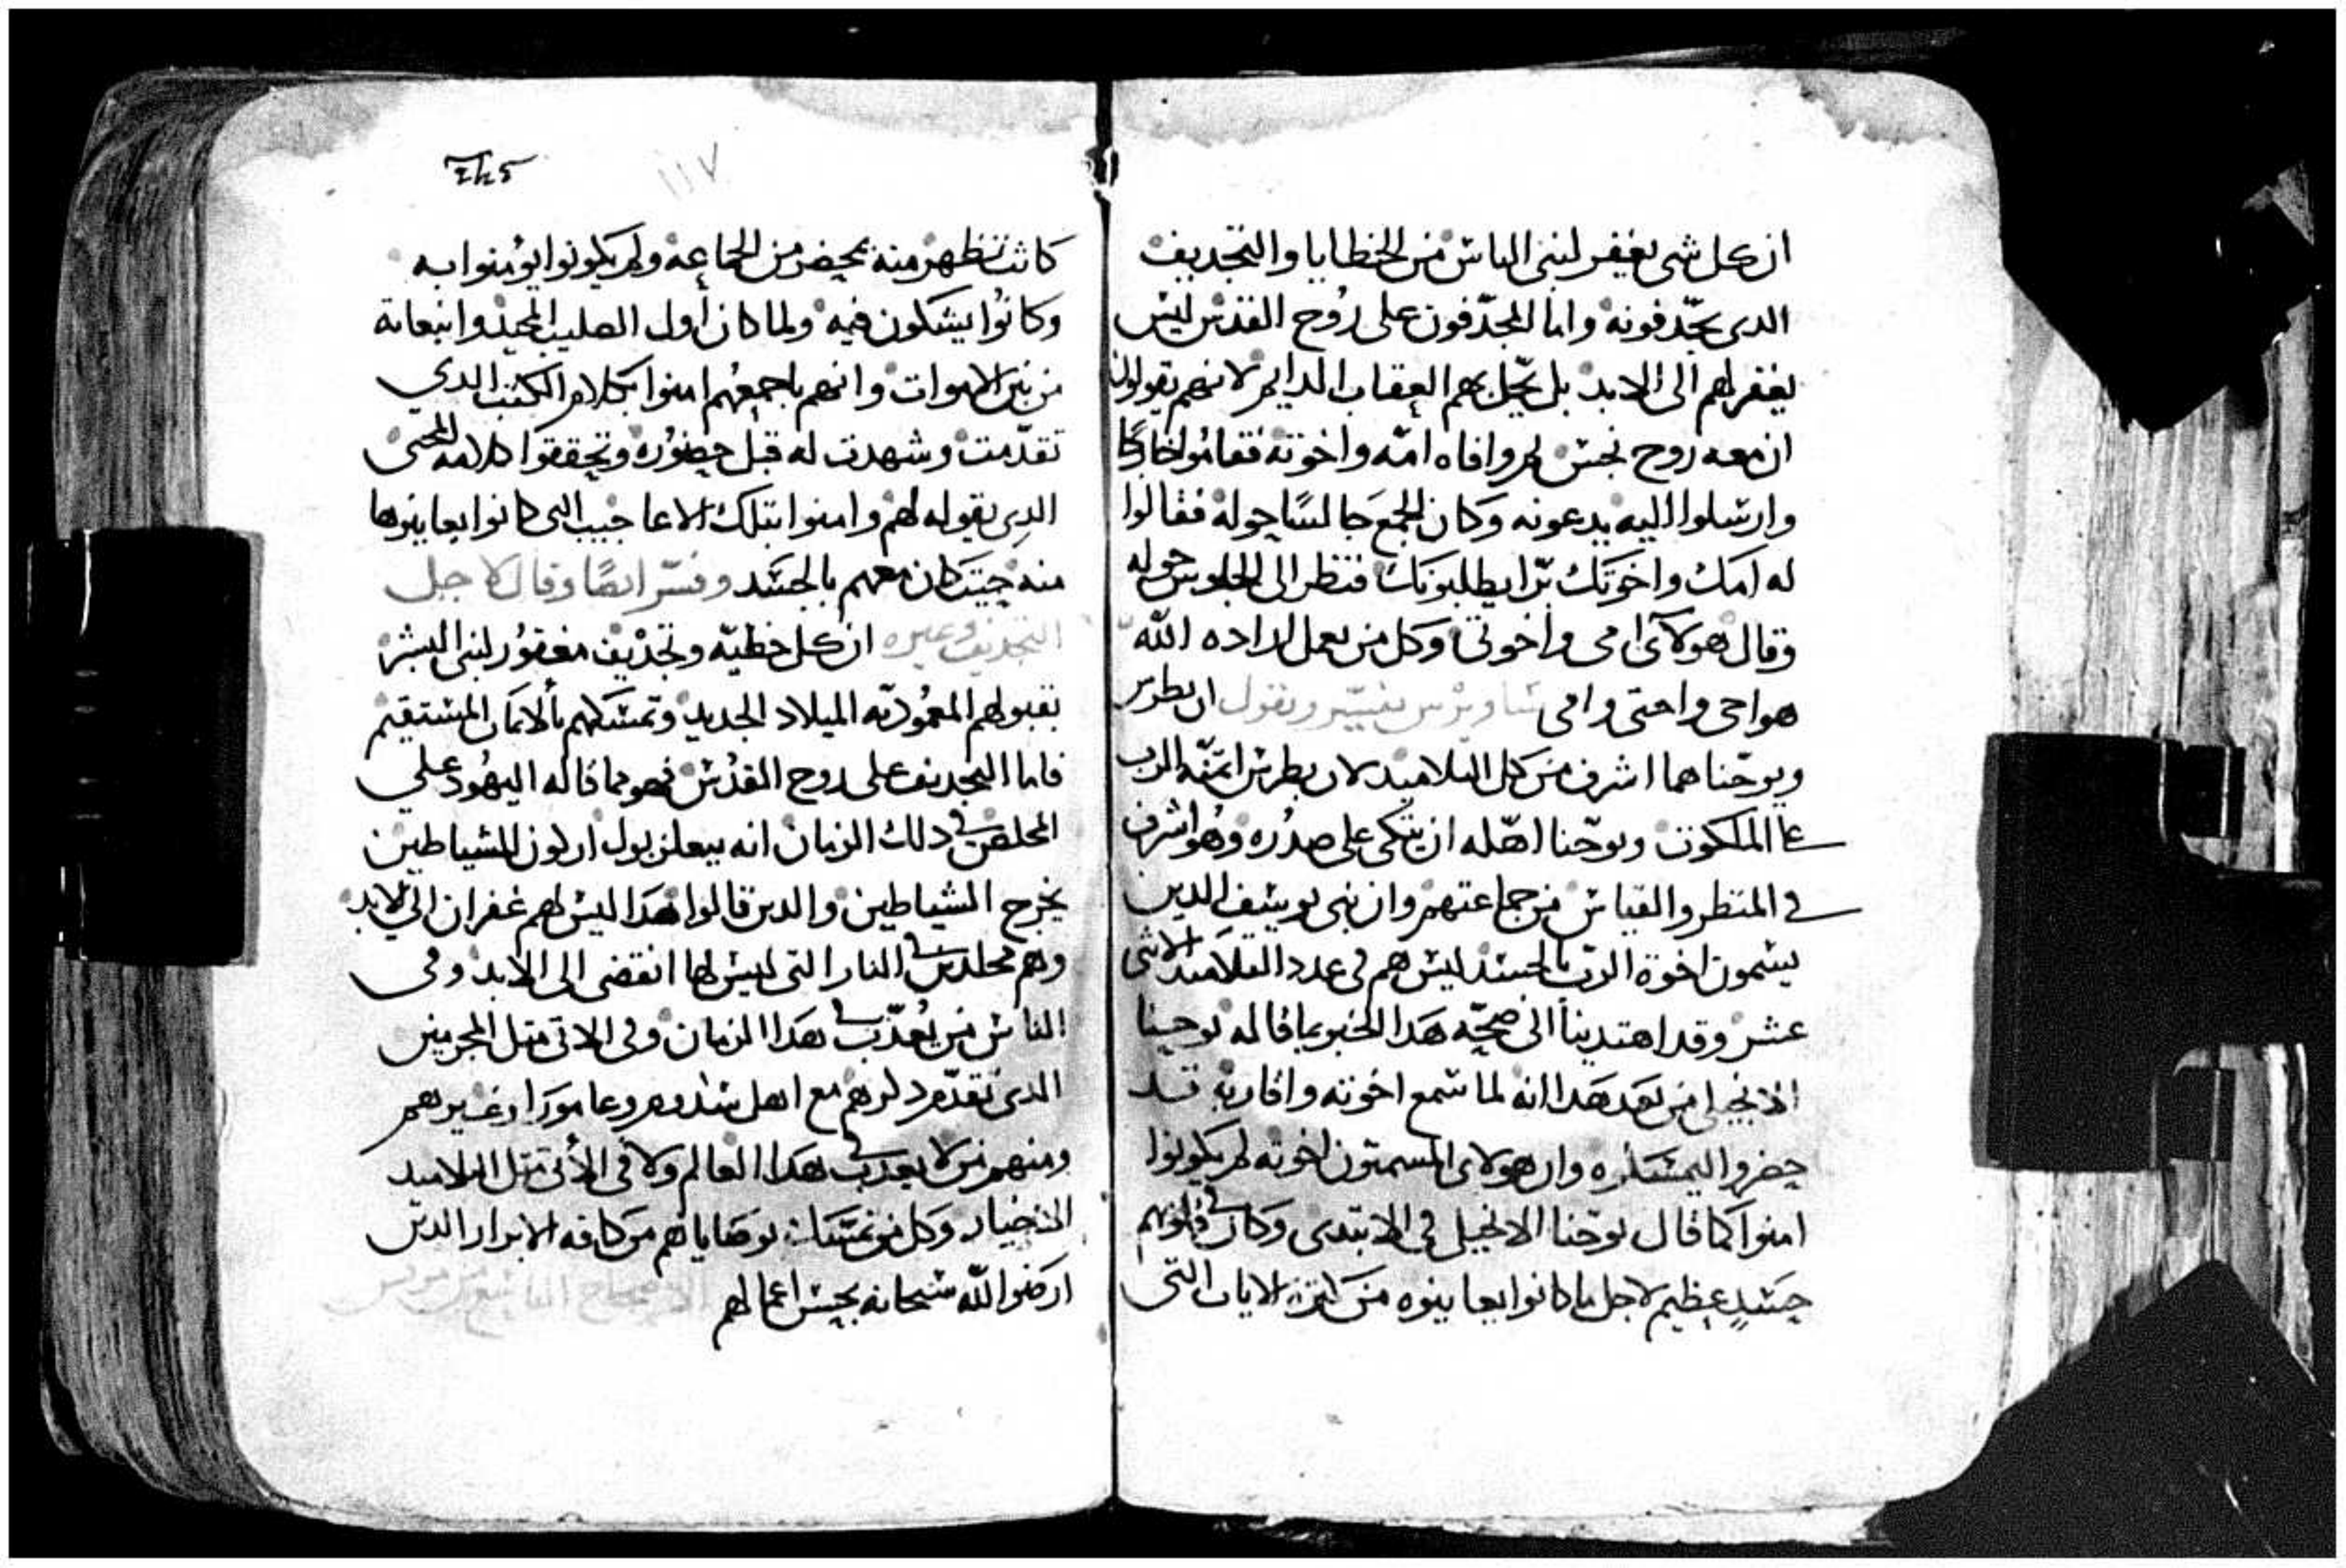 ان كل شى يغفر لبنى الناس من الخطايا والتجديف
الدى يجدفونه واما المجدّفون على رُوح القدس ليس
يغفر لهم الى الابد بل يحّل بهم العقاب الدايم لانهم يقولون
ان معه روح نجس لم وافاه امّه واخوته فقامُوا خارجًا
وارسلوا اليه يدعونه وكان الجمع جالسًا حوله فقالوا
له امك واخوتك برّا يطلبونك فنظر الى الجلوس حوله
وقال هولآى امى واخوتى وكل من يعمل اراده الله
هو اخى واختى وامى ساويرس يفسّر ويقول ان بطرس
ويوحّنا هما اشرف من كل التلاميد لان بطرس ايتمنه الرب
على الملكوت ويوحّنا اهّله ان يتكى على صدُره وهُو اشرف
فى المنظر والقياس من جماعتهم وان بنى يوسف الدين
يسمون اخوة الربّ بالجسد ليس هم فى عدد التلاميد الاثنى
عشر وقد اهتدينا الى صحّه هدا الخبر بما قاله يوحنا
الانجيلى من بعد هدا انه لما سمع اخوته واقاربه قد
حضروا ليمسكوه وان هولاى المسمّون اخوته لم يكونوا
امنوا كما قال يوحّنا الانجيل فى الابتدى وكان فى قلوبهم
حسدٍ عظيم لاجل ما كانوا يعاينوه من كثرة الايات التى
١١٧
كانت تظهر منه بمحضر من الجماعه ولم يكونوا يومنوا به
وكانوا يشكون فيه ولما كان أول الصليب المجيد وانبعاته
من بين الاموات وانهم باجمعهم امنوا بكلام الكتب الدي
تقدّمت وشهدت له قبل حضوره وتحققوا كلامه المحيى
الدى يقوله لهم وامنوا بتلك الاعاجيب التى كانوا يعاينوها
منه حيت كان معهم بالجسد وفسّر ايضًا وقال لاجل
التجديف وغيره ان كل خطيّه وتجديف مغفوُر لبنى البشر
بقبولهم المعمُوديّه الميلاد الجديد وتمسكهم بالامان المستقيم
فاما التجديف على روح القدُس فهو ما قاله اليهُود علي
المخلص فى دلك الزمان انه ببعلزبول اركون الشياطين
يخرج الشياطين والدين قالوا هدا ليس لهم غفران الي الابد
وهم مخلدين فى النار التى ليس لها انقضى الى الابد وفى
الناس من يُعدّب فى هدا الزمان وفى الاتى متل المجرمين
الدى تقدّم دكرهم مع اهل سدوم وعامورا وغيرهم
ومنهم من لا يعدب فى هدا العالم ولا فى الأتى متل التلاميد
الاخيار وكل من تمسّك بوصاياهم من كافه الابرار الدين
ارضوا الله سبحانه بحسن اعمالهم الاصحاح التاسع من مرقس